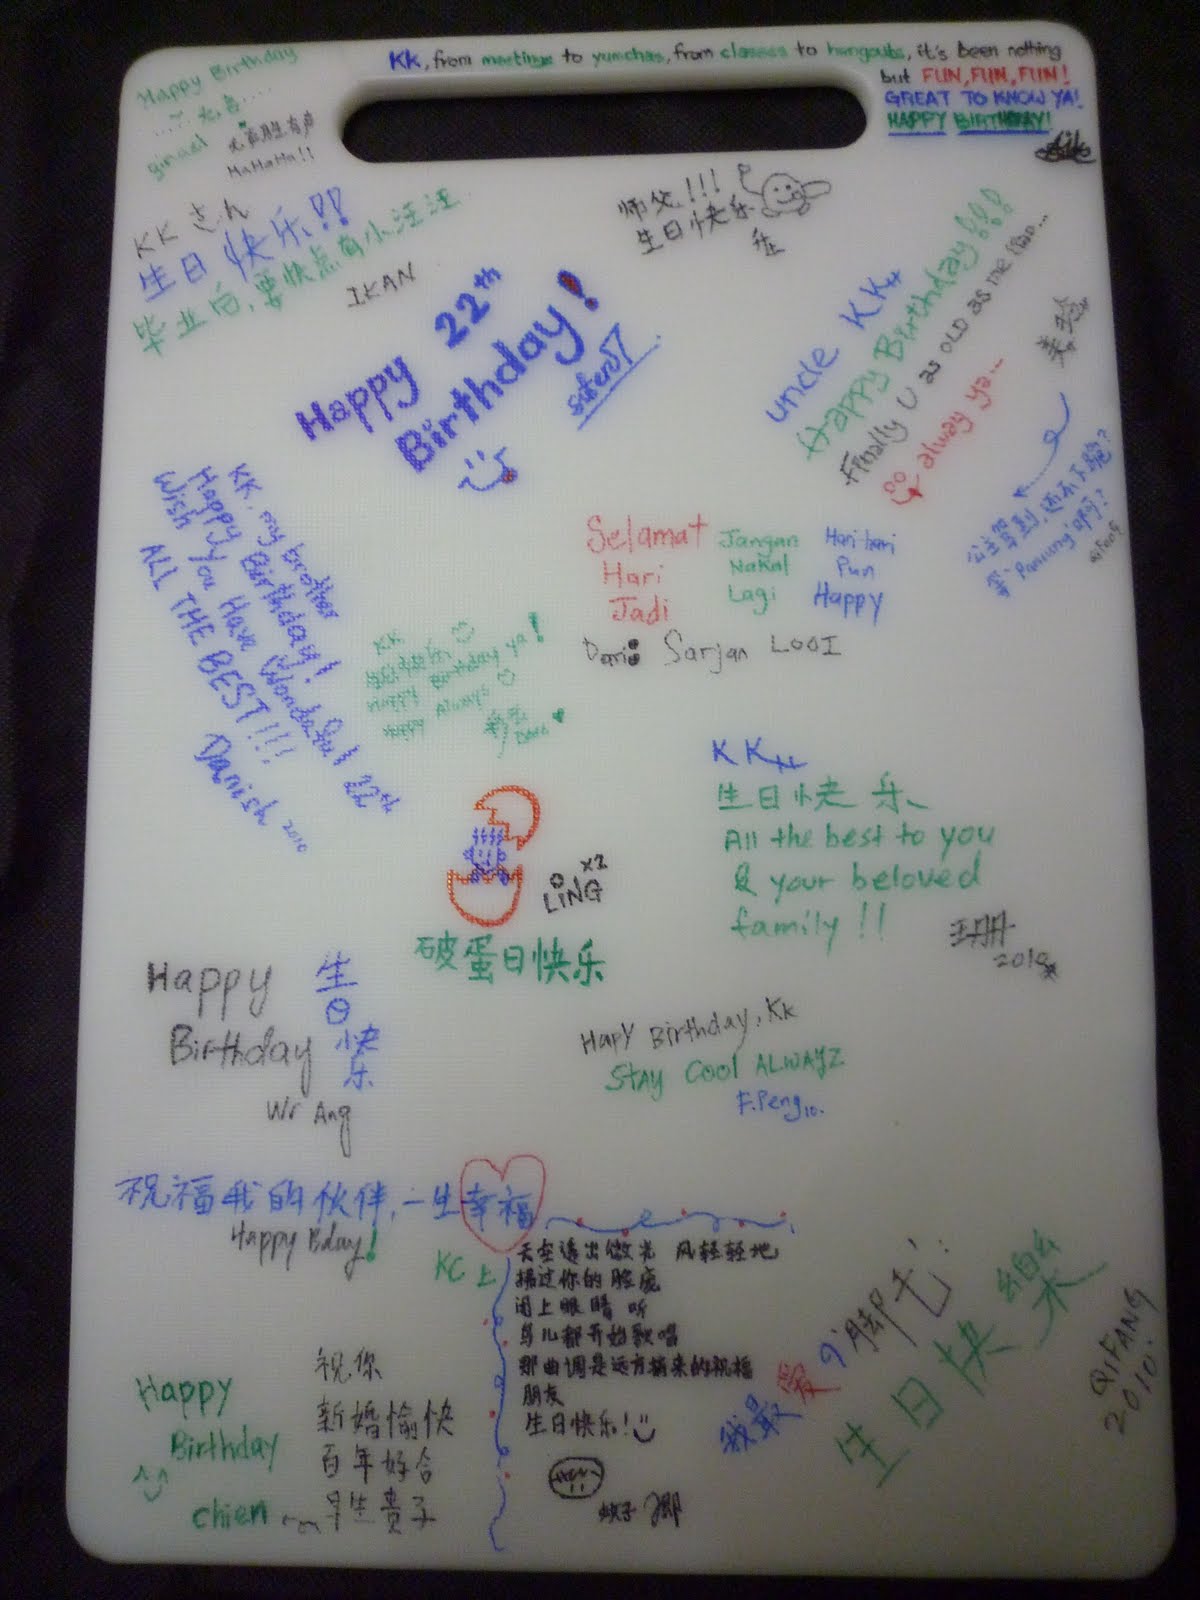 Happy Birthday
...... 无言....
ginael
无声胜有声
HaHaHa!!
KK, from meetings to yumchas, from classess to hangouts, it's been nothing
but FUN, FUN, FUN!
GREAT TO KNOW YA!
HAPPY BIRTHDAY!
KK さん
生日快乐!!
毕业后,要快点有小汪汪
IKAN
师父!!!
生日快乐
Happy 22th
Birthday!
uncle KK
Happy Birthday!!!
Finally U as OLD as me liao...
alway ya...
公主驾到,还不下跪?
Qifang
KK, my brother
Happy Birthday!
Wish You Have Wonderful 22th
ALL THE BEST!!!
Danish 2010
Selamat
Hari
Jadi
Jangan
Nakal
Lagi
Hari hari
Pun
Happy
Dari: Sarjan LOOI
KK
生日快乐
Happy Birthday ya!
Happy Always
KK
生日快乐
All the best to you
& your beloved
family!!
2010
LiNG x2
破蛋日快乐
Happy
Birthday
生日快乐
Wr Ang
Hapy Birthday, Kk
STAY Cool ALWAYZ
F.Peng 10.
祝福我的伙伴,一生幸福
Happy Bday!
KC 上
天空透出微光 风轻轻地
掠过你的脸庞
闭上眼睛 听
鸟儿都开始歌唱
那曲调是远方捎来的祝福
朋友
生日快乐!
蚊子
Happy
Birthday
^^
chien
祝你
新婚愉快
百年好合
早生贵子
我最爱的脚毛:
生日快樂
QIFANG
2010.